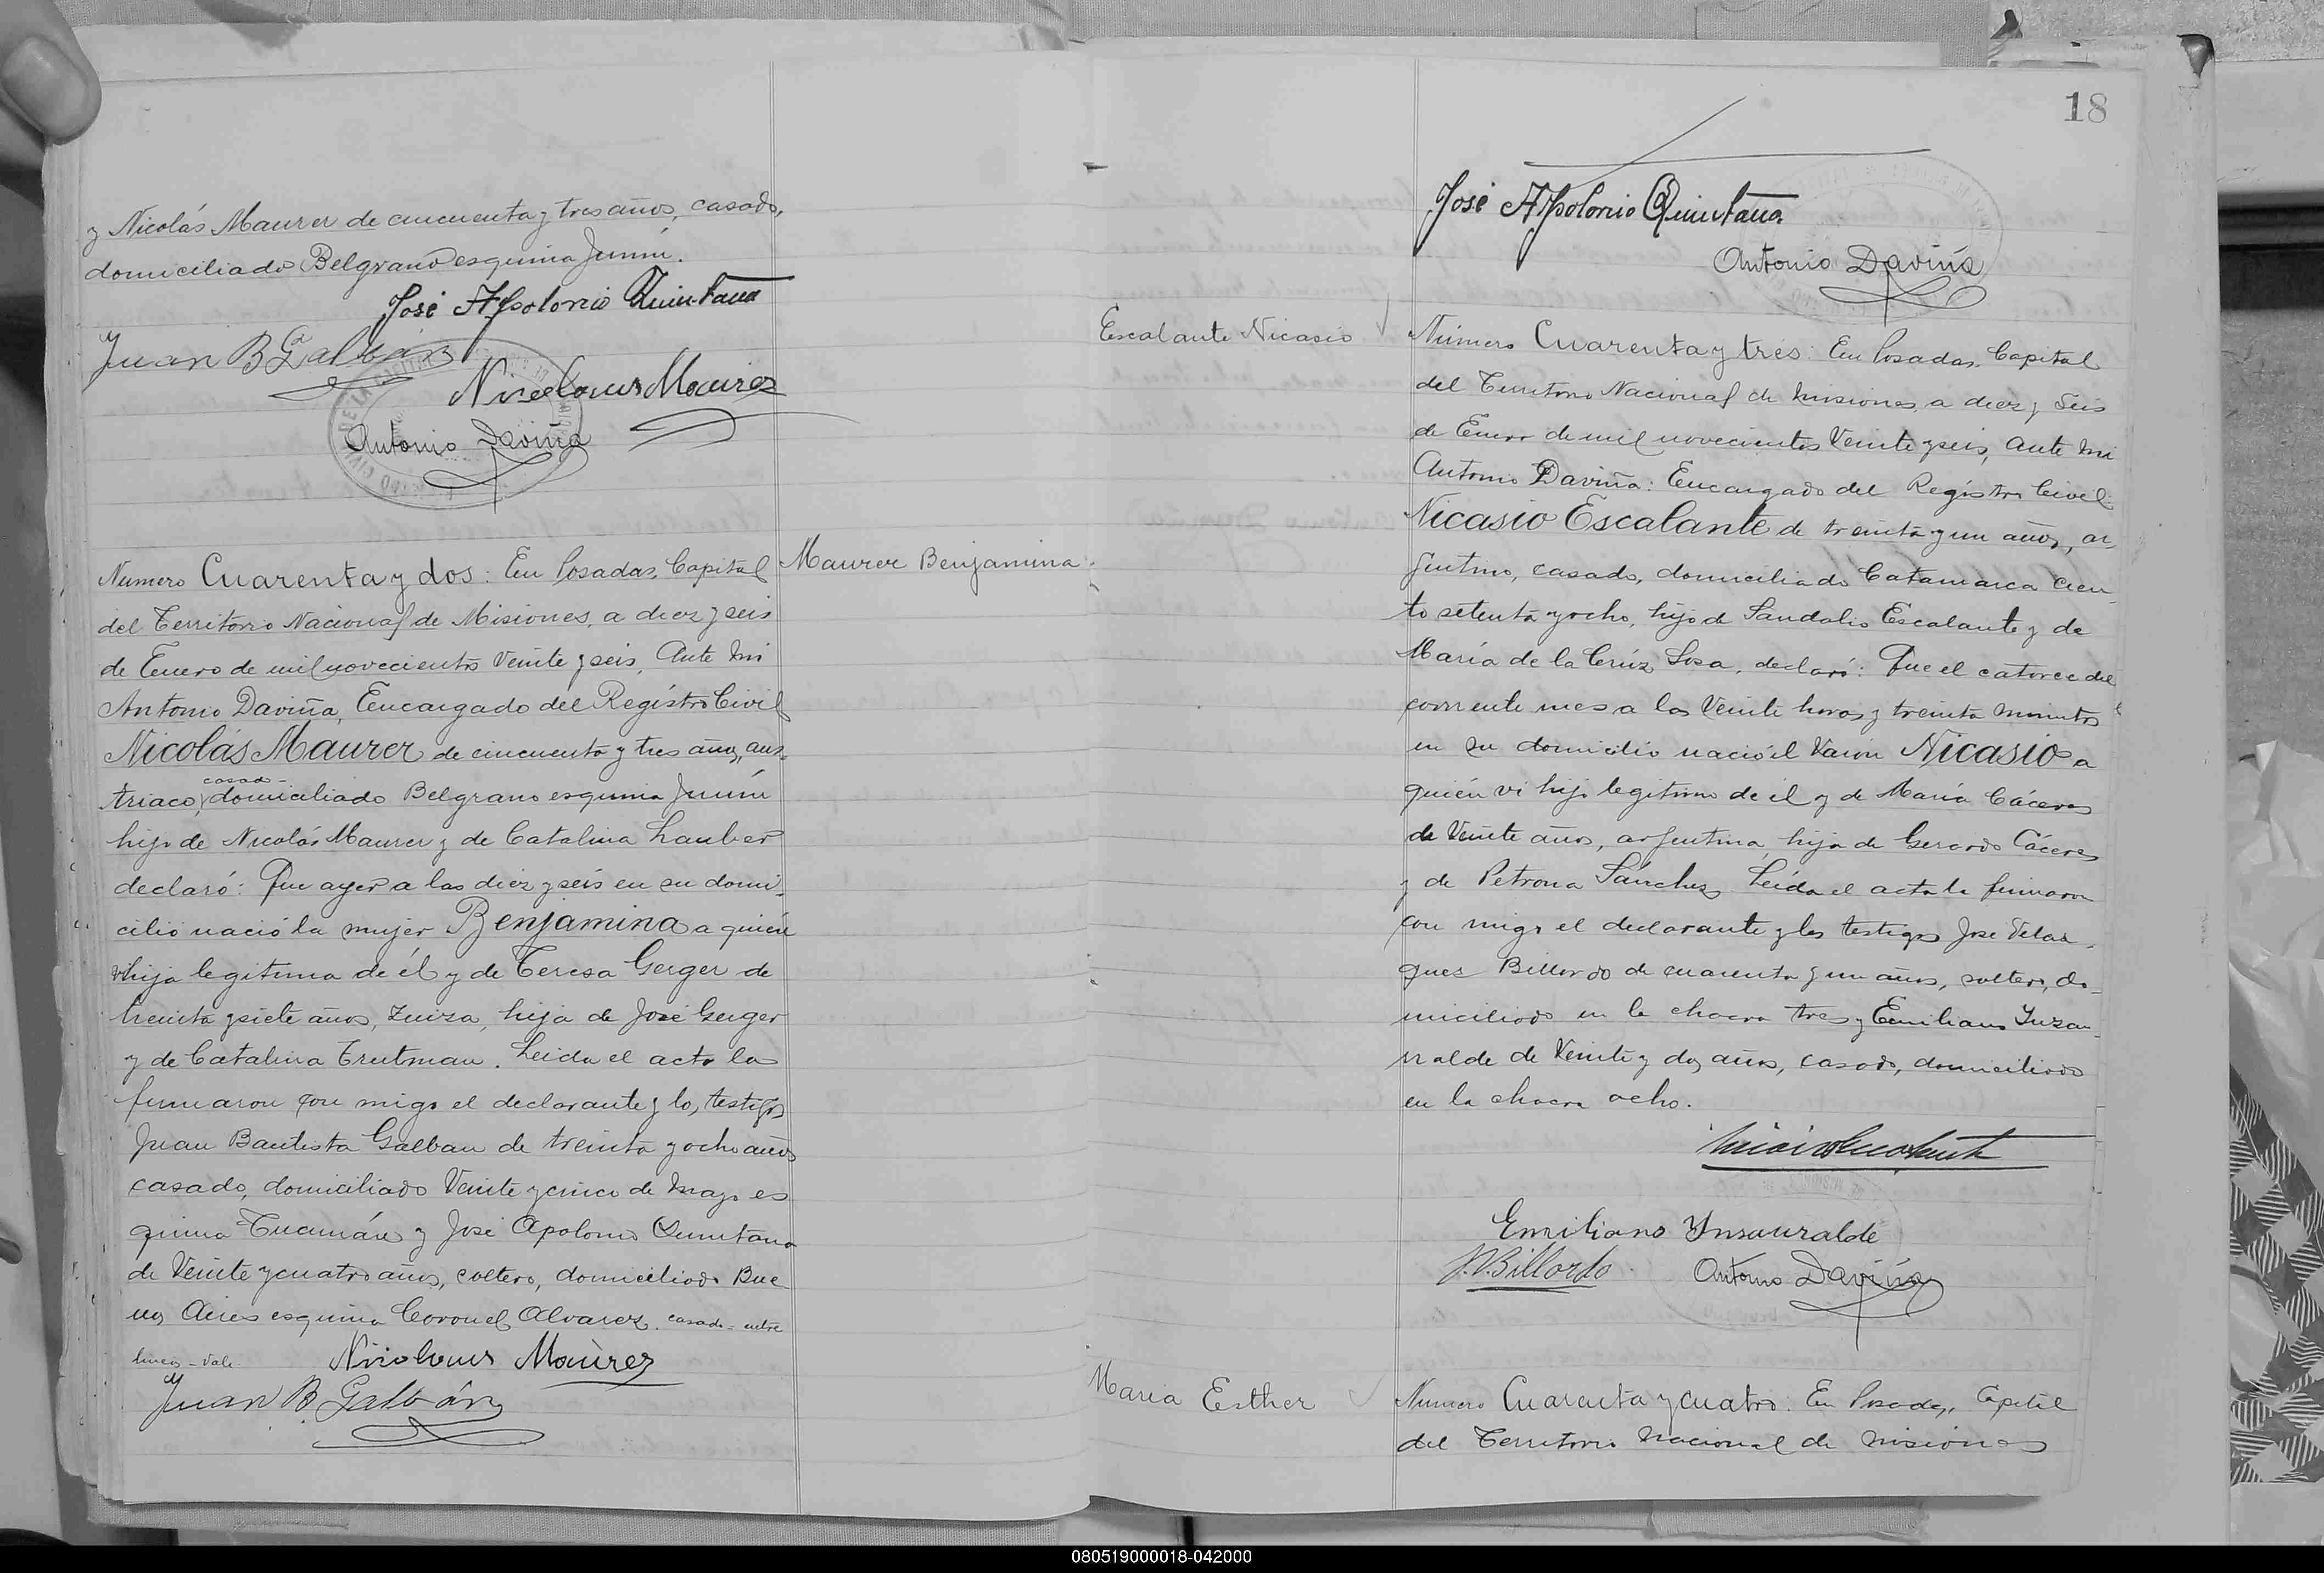 y Nicolás Maurer de cincuenta y tres años, casado,
domiciliado Belgrano esquina Junín.
José Apolonio Quintana
Juan B Galbán
Nicolaus Maurer
Antonio Daviña
Maurer Benjamina
Numero Cuarenta y dos: En Posadas, Capital
del Territorio Nacional de Misiones, a diez y seis
de Enero de mil novecientos Veinte y seis, Ante mi
Antonio Daviña, Encargado del Registro Civil
Nicolás Maurer de cincuenta y tres años, aus-
casado-
triaco, domiciliado Belgrano esquina Junín
hijo de Nicolás Maurer y de Catalina Lauber
declaró: Que ayer a las diez y seis en su domi-
cilio nació la mujer Benjamina a quién
vi hija legitima de él y de Teresa Gerger de
treinta y siete años, Zuiza, hija de José Gerger
y de Catalina Trutman. Leida el acta la
firmaron con migo el declarante y los testigos
Juan Bautista Galban de treinta y ocho años
casado, domiciliado Veinte y cinco de Mayo es
quina Tucumán y José Apolonio Quintana
de Veinte y cuatro años, soltero, domiciliado Bue
nos Aires esquina Coronel Alvarez. casado = entre
lineas - Vale.
Nicolaus Maurer
Juan B Galbán
18
José Apolonio Quintana
Antonio Daviña
Escalante Nicasio
Número Cuarenta y tres: En Posadas, Capital
del Territorio Nacional de Misiones, a diez y Seis
de Enero de mil novecientos Veinte y seis, Ante mi
Antonio Daviña: Encargado del Registro Civil:
Nicasio Escalante de treinta y un años, ar-
gentino, casado, domiciliado Catamarca Cien-
to setenta y ocho, hijo de Sandalio Escalante y de
María de la Crúz Sosa, declaró: Que el catorce del
corriente mes a las Veinte horas y treinta minutos
en su domicilio nació el Varon Nicasio a
quién vi hijo legitimo de él y de María Cáceres
de Veinte años, argentina, hija de Gerardo Cáceres
y de Petrona Sánchez. Leída el acta la firmaron
con migo el declarante y los testigos José Velas-
ques Billordo de cuarenta y un años, soltero, do-
miciliado en la chacra tres y Emiliano Inzau-
rralde de Veinte y dos años, casado, domiciliado
en la chacra ocho.
Emiliano Ynsauralde
J.V. Billordo
Antonio Daviña
Maria Esther
Numero Cuarenta y cuatro: En Posadas, Capital
del Territorio Nacional de Misiones
080519000018-042000